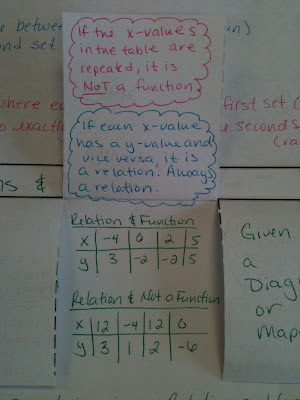 e between
ond set
in)
If the x-values
in the table are
repeated, it is
NOT a function.
where e
o exactly
first set (
e second s
(ra
If each x-value
has a y-value and
vice versa, it is
a relation. Always
a relation.
ns &
Relation & Function
x | -4 | 0 | 2 | 5
y | 3 | -2 | -2 | 5
Relation & Not a Function
x | 12 | -4 | 12 | 0
y | 3 | 1 | 2 | -6
Given
a
Diag
or
Mapp